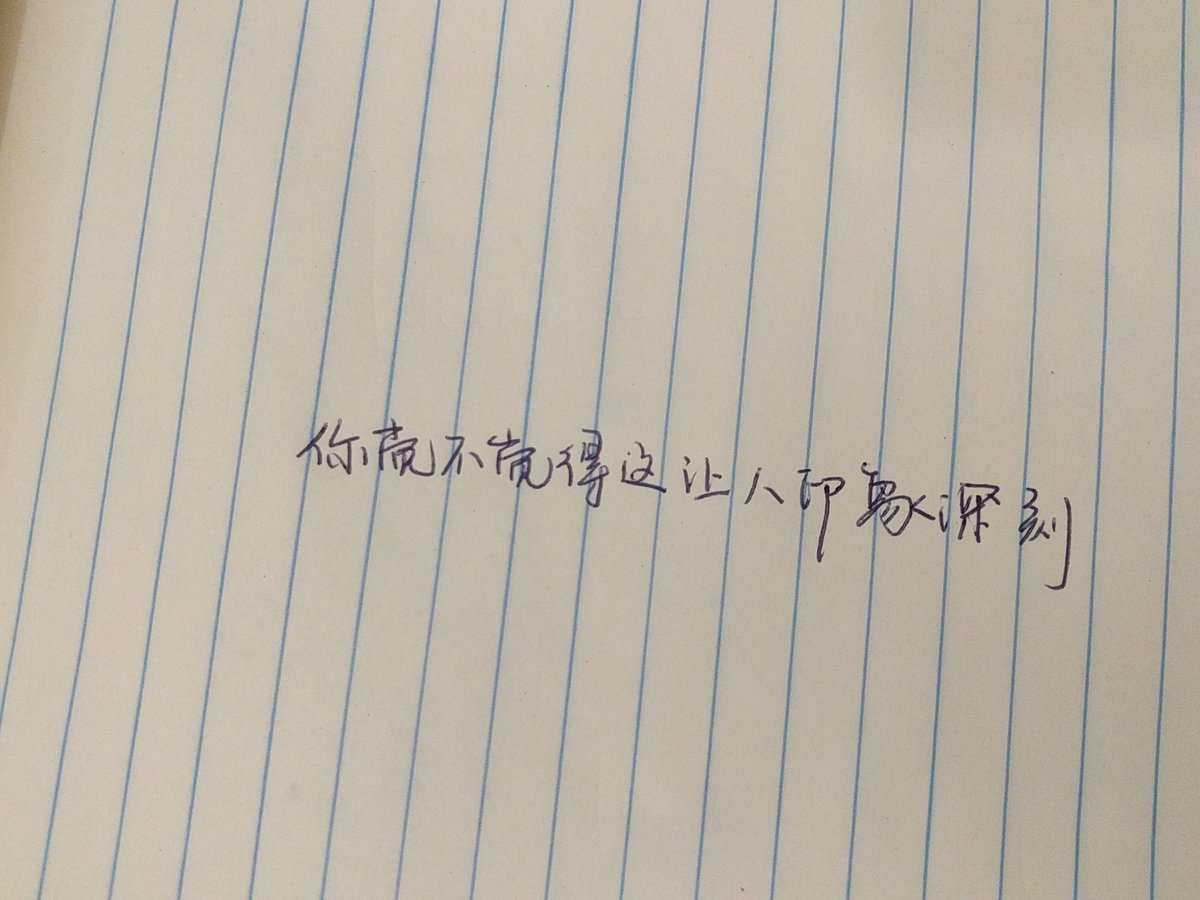 你觉不觉得这让人印象深刻